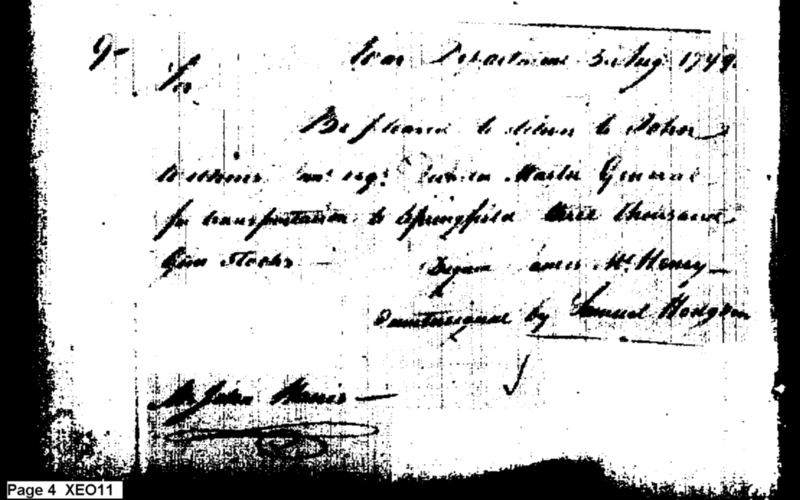 9- War Department 3 Aug 1799.
Sir
Be pleased to deliver to John
Wilkins Junr esqr Quarter Master General
for transportation to Springfield three thousand
Gun Stocks
Signed James McHenry
Countersigned by Samuel Hodgdon
Mr John Harris
Page 4 XEO11